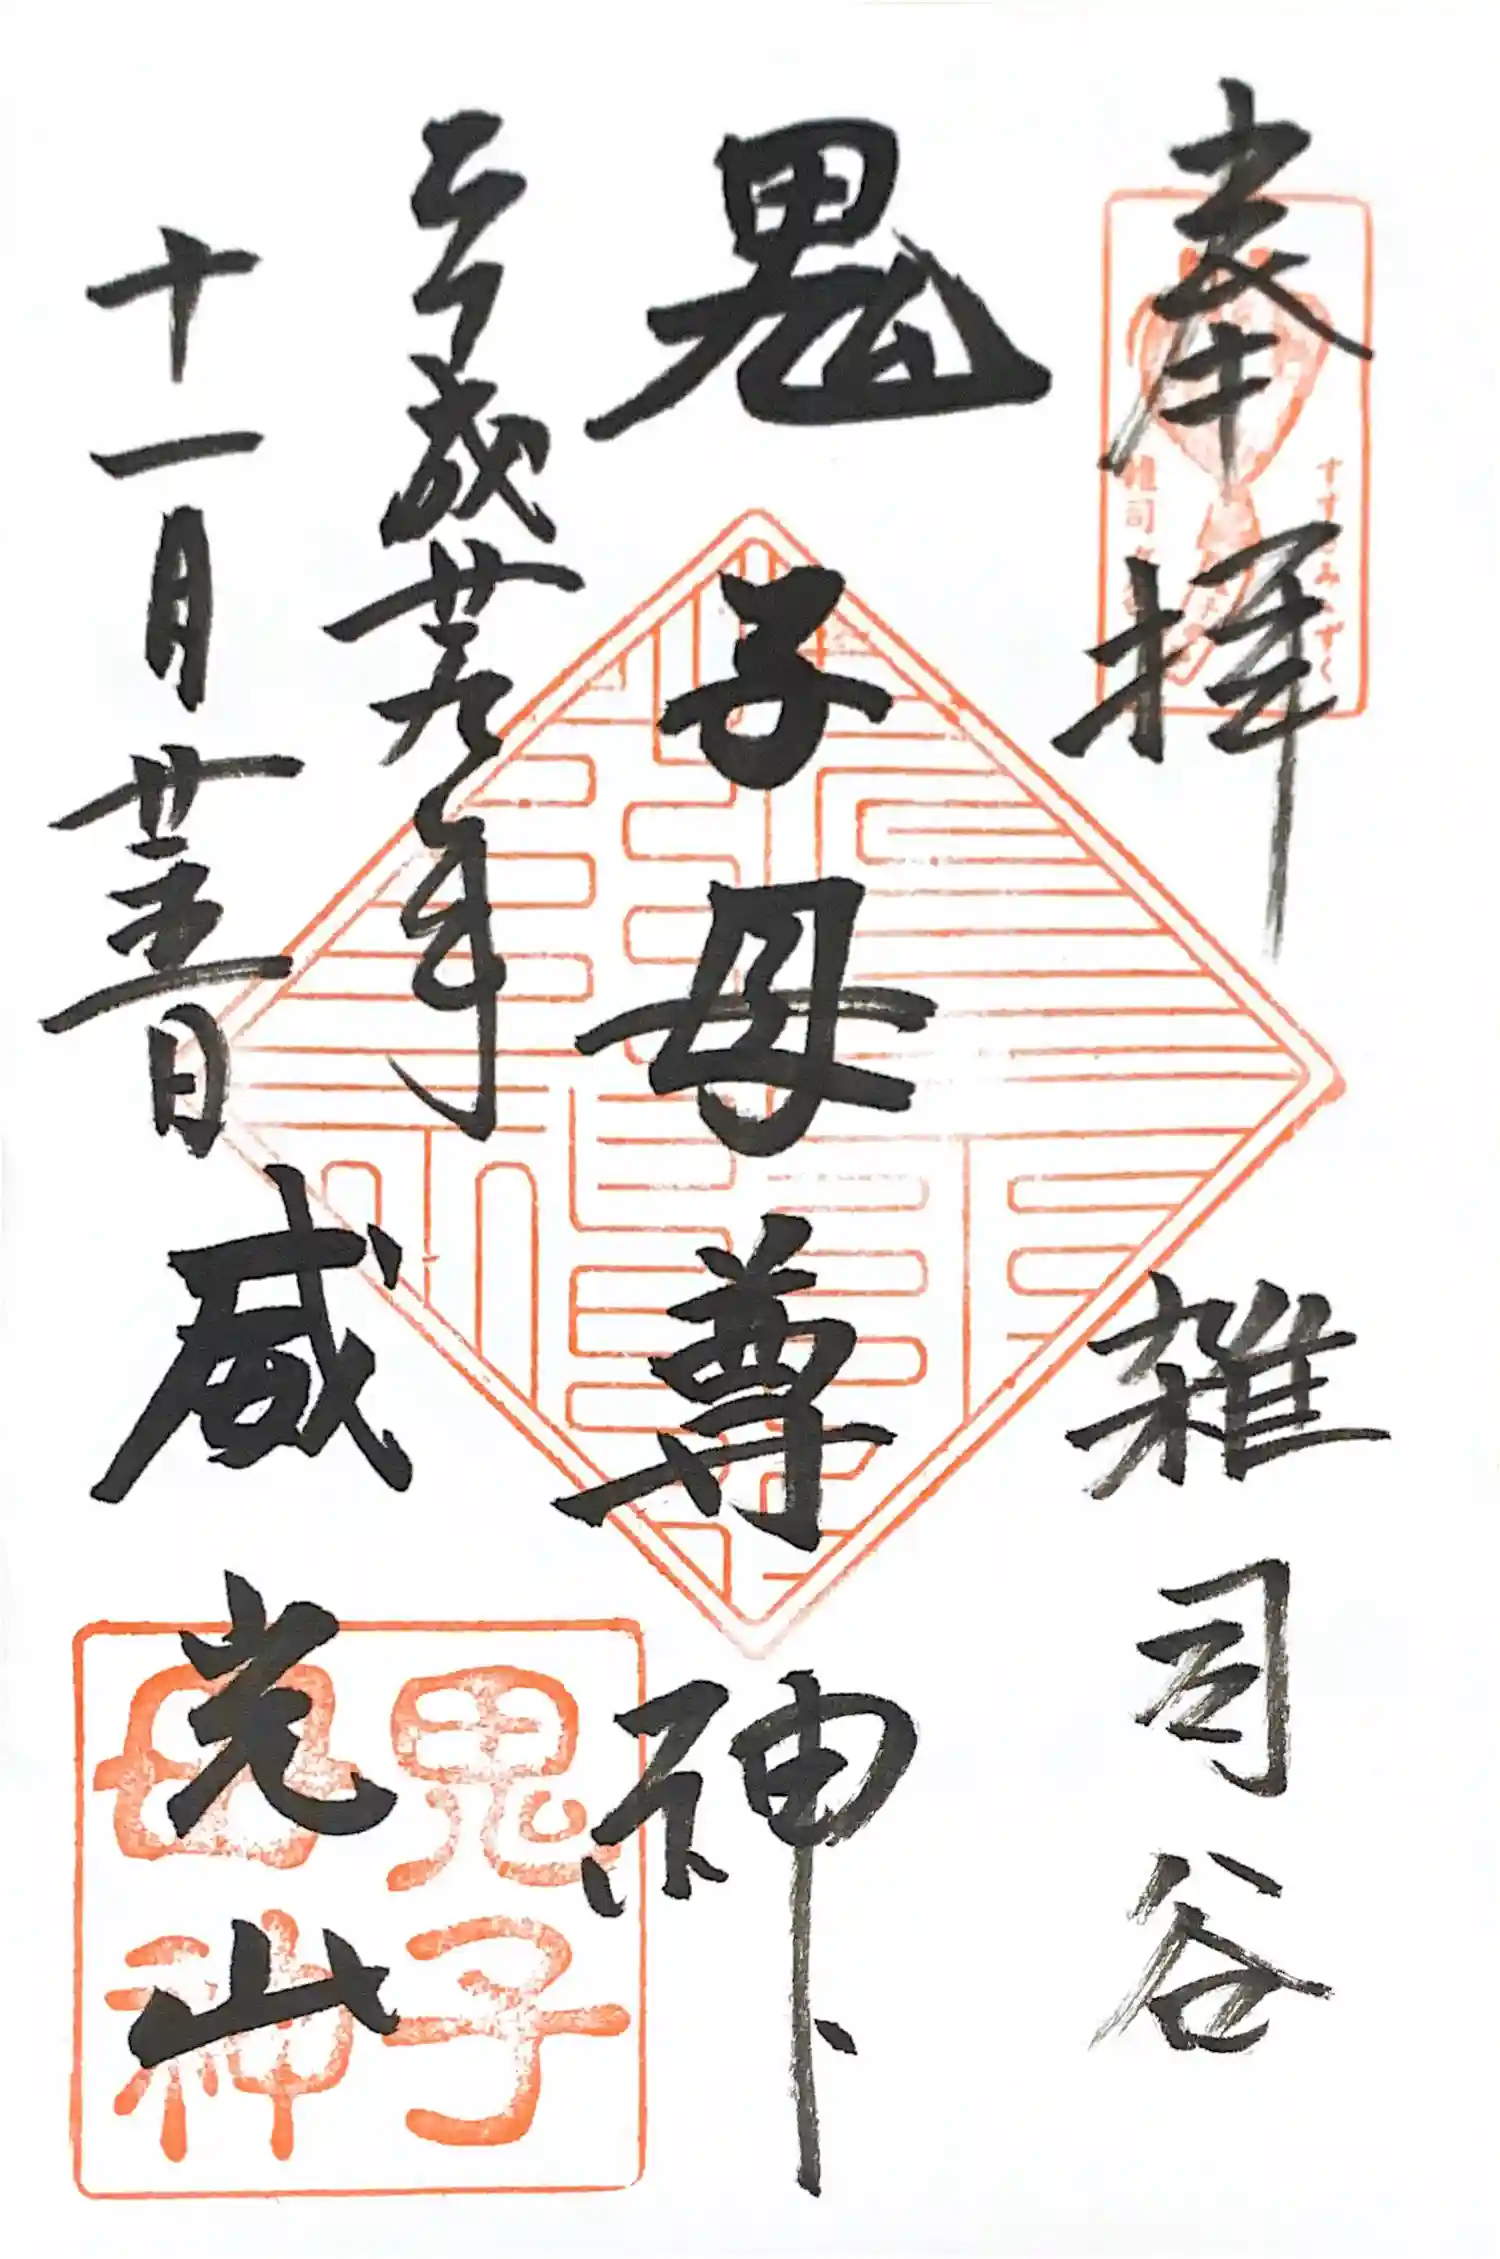 奉拝
雑司谷
すすきみみずく
雑司
鬼子母尊神
平成廿九年
十一月廿五日
威光山
鬼子
母神